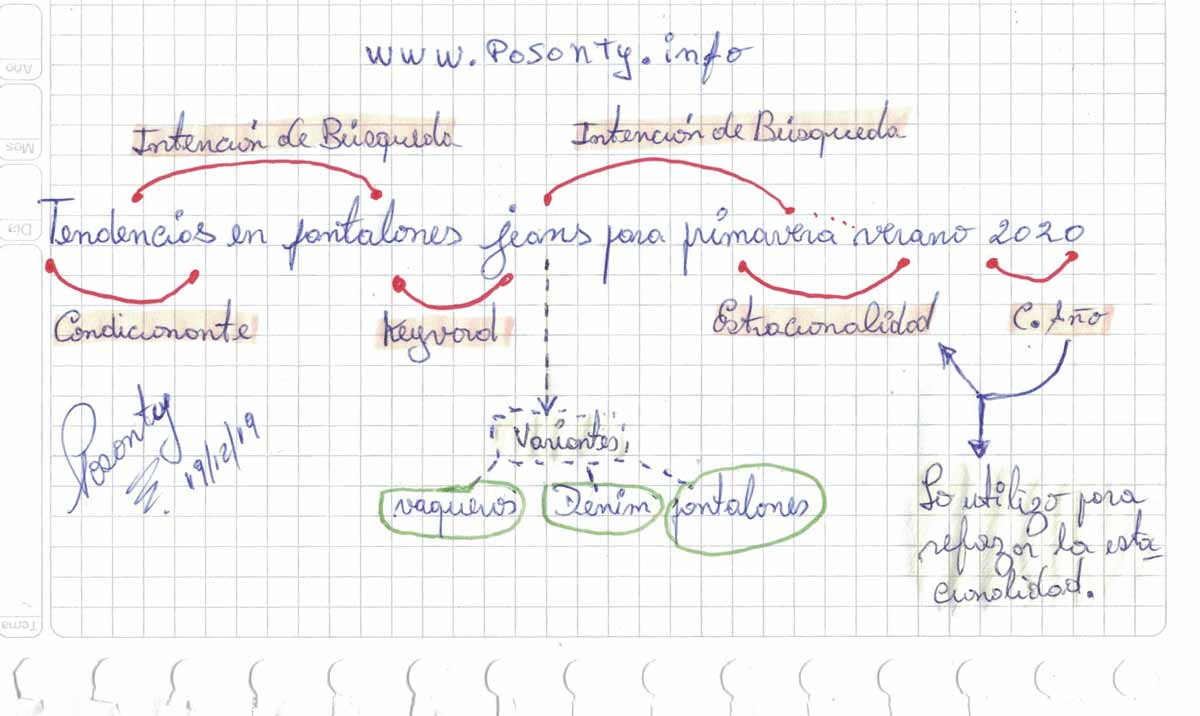 www.Posonty.info
Intención de Búsqueda
Intención de Búsqueda
Tendencias en pantalones jeans para primavera verano 2020
Condicionante
Keyword
Estracionalidad
C. Año
Variantes,
vaqueros
Denim
pantalones
Posonty
19/12/19
Lo utilizo para
refozar la esta-
cionalidad.
Año
Mes
Día
Tema